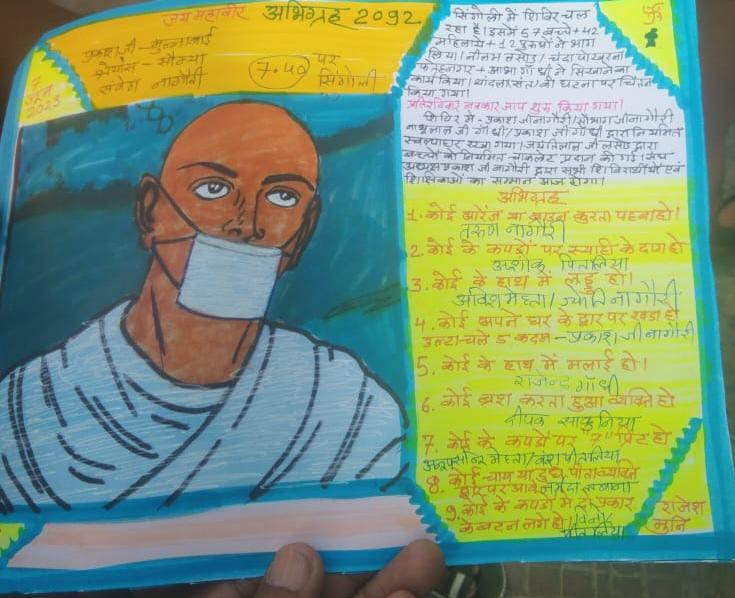 जय महावीर अभिग्रह 2092
प्रकाश जी - मुन्नाबाई
श्रेयांस - सौम्या
सर्वेश नागौरी
7.40 पर
सिंगोली
7
जून
2023
सिंगोली में शिविर चल
रहा है। इसमें 57 बच्चे + 42
महिलायें + 12 पुरुषों ने भाग
लिया। नीलम लसोड़ / चंदा पोखरना
+ आभा गांधी ने सिखाने का
कार्य किया। चंदनासती की घटना पर चिंतन
किया गया।
प्रतिरविवार नवकार जाप शुरु किया गया।
शिविर में - प्रकाश जी नागौरी / सौभाग जी नागौरी
नाथुलाल जी गांधी / प्रकाश जी गांधी द्वारा नियमित
स्वल्पाहार रखा गया। जयंतिलाल जी लसोड़ द्वारा
बच्चों को नियमित चाकलेट प्रदान की गई। संघ
अध्यक्ष प्रकाश जी नागौरी द्वारा सभी शिविरार्थियों एवं
शिक्षिकाओं का सम्मान आज होगा।
अभिग्रह
1. कोई आरेंज या ब्राउन कुरता पहना हो।
तरुण नागौरी
2. कोई के कपड़ों पर स्याही के दाग हो
अशोक पितलिया
3. कोई के हाथ में लड्डू हो।
अविश मेहता / ज्योति नागौरी
4. कोई अपने घर के द्वार पर खड़ा हो
उल्टा चले 5 कदम - प्रकाश जी नागौरी
5. कोई के हाथ में मलाई हो।
राजेन्द्र गांधी
6. कोई ब्रश करता हुआ व्यक्ति हो
दीपक साकुनिया
7. कोई के कपड़ों पर "7" प्रिंट हो
मेहता / वंश पितलिया
8. कोई चाय या दुध पीता व्यक्ति
द्वार पर आवे
9. कोई के कपड़ों में दो प्रकार
के बटन लगे हो। विनोद
पितलिया
राजेश
मुनि